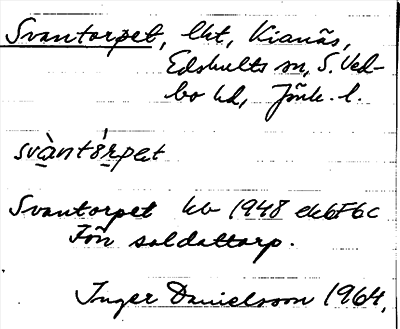 Svantorpet, lht, Kianäs,
Edshults sn, S. Ved-
bo hd, Jönk. l.
svàntórpet
Svantorpet kb 1948 ekbl 7F6c
Fön soldattorp.
Inger Danielsson 1964.